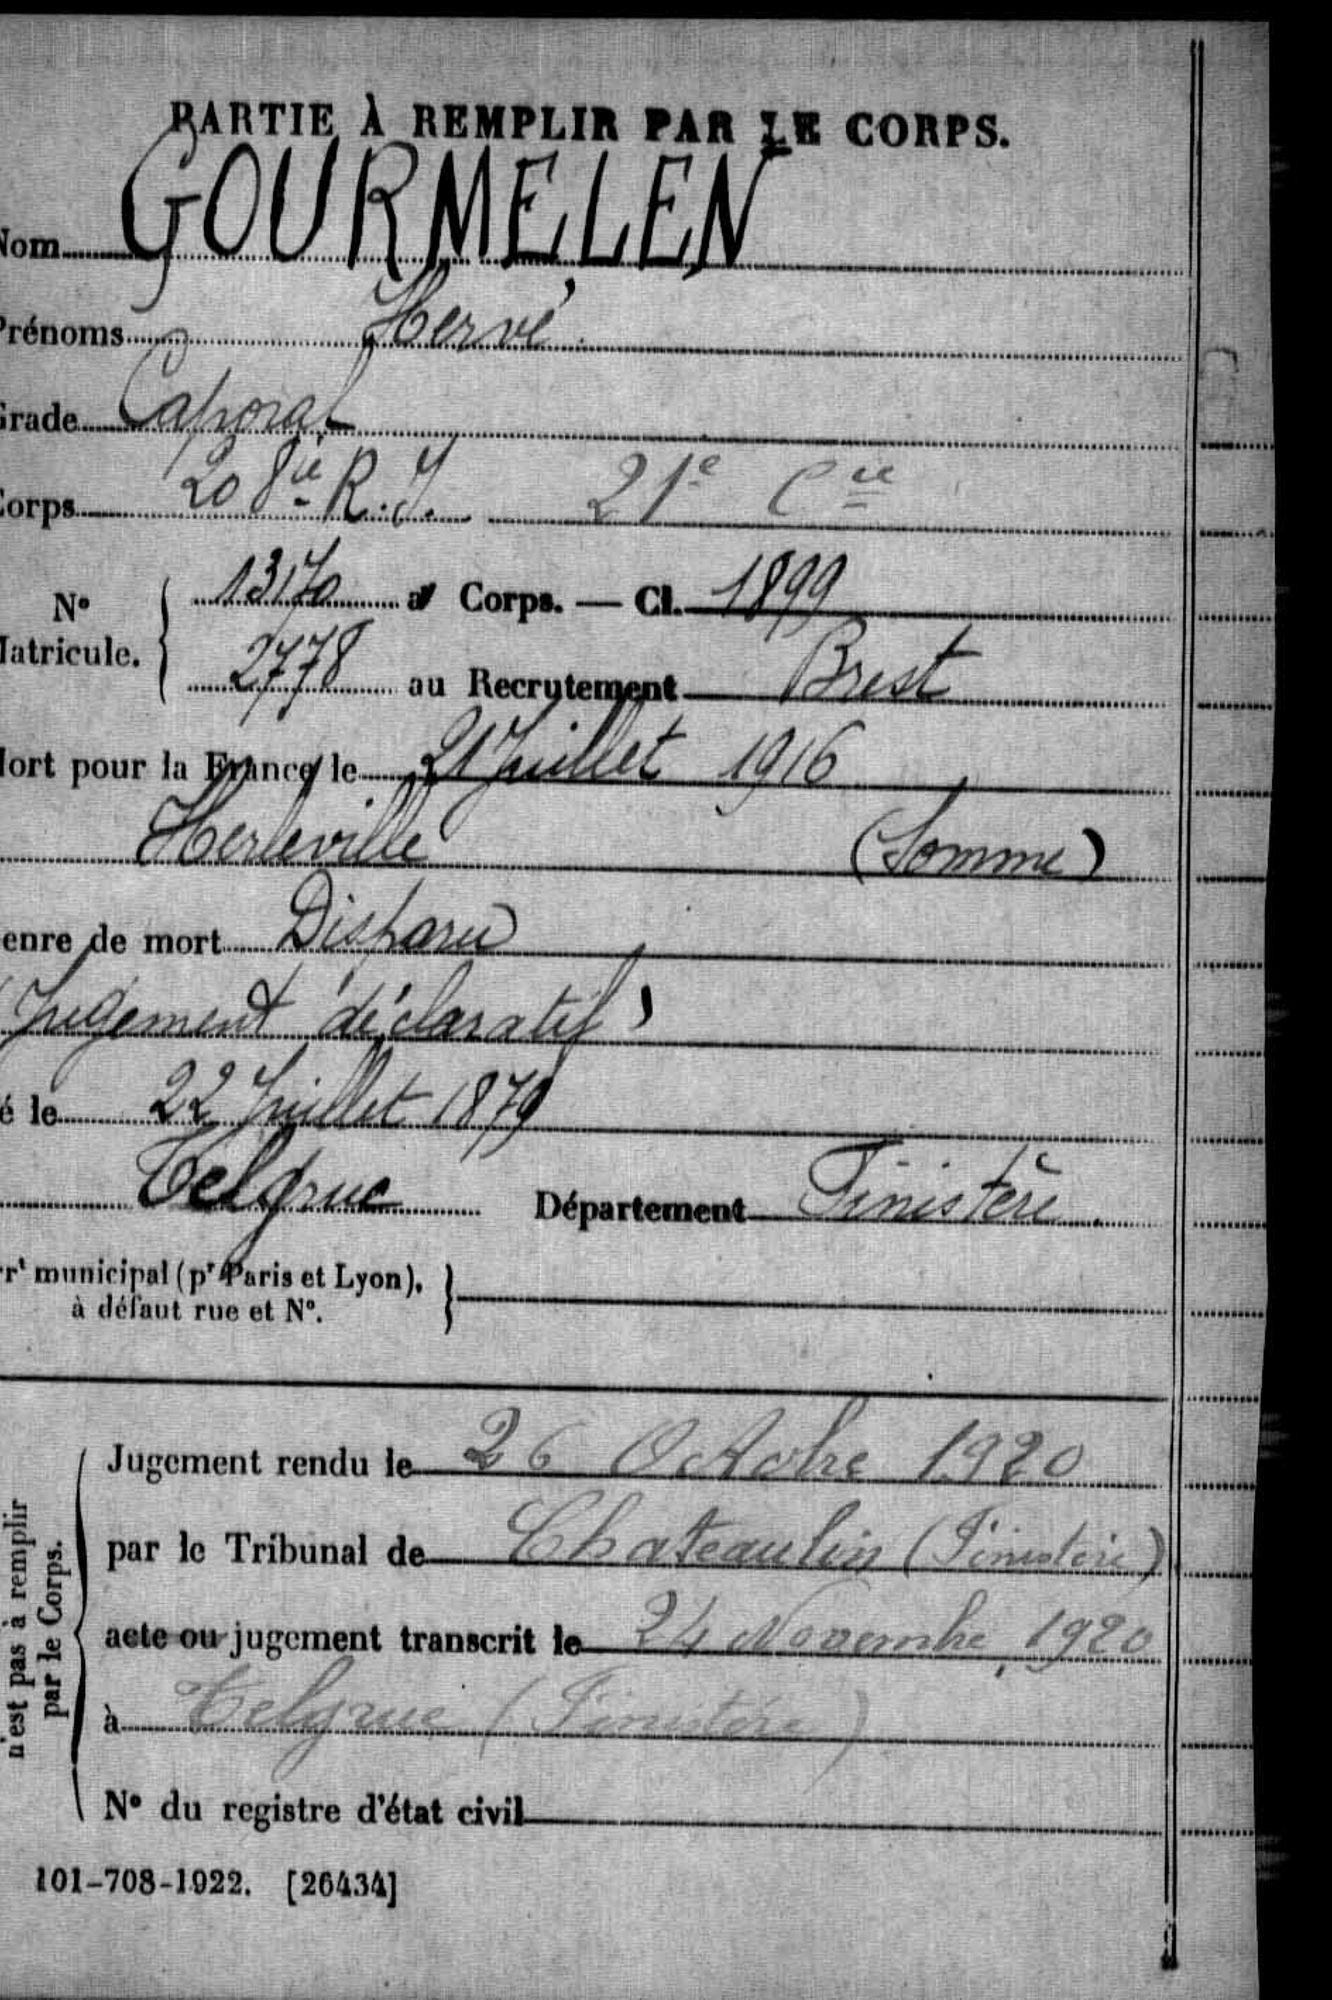 PARTIE À REMPLIR PAR LE CORPS.
Nom GOURMELEN
Prénoms Hervé.
Grade Caporal
Corps 208e R.I. 21e Cie
N° Matricule. { 13170 au Corps. — Cl. 1899
2778 au Recrutement Brest
Mort pour la France le 21 Juillet 1916
Herleville (Somme)
Genre de mort Disparu
(Jugement déclaratif)
é le 22 Juillet 1879
Telgruc Département Finistère.
rrt municipal (pr Paris et Lyon),
à défaut rue et N°. }
n'est pas à remplir
par le Corps.
Jugement rendu le 26 Octobre 1920
par le Tribunal de Chateaulin (Finistère)
acte ou jugement transcrit le 24 Novembre 1920
à Telgruc (Finistère)
N° du registre d'état civil
101-708-1922. [26434]